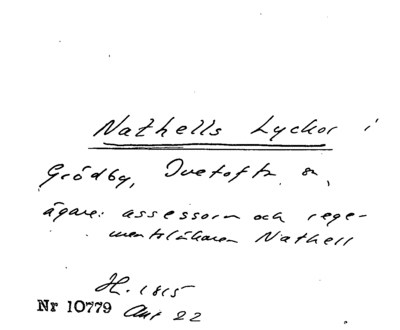 Nathells Lyckor i
Grödby, Ivetofta sn,
ägare: assessorn och rege-
mentsläkaren Nathell
H. 1815
Nr 10779 Akt 22